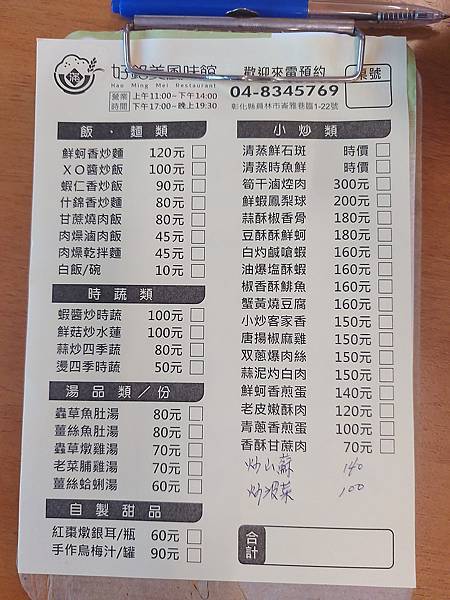 好銘美風味館
Hao Ming Mei Restaurant
營業時間 上午11:00~下午14:00
下午17:00~晚上19:30
歡迎來電預約
04-8345769
彰化縣員林市崙雅巷臨1-22號
桌號
飯．麵類
鮮蚵香炒麵 120元
ＸＯ醬炒飯 100元
蝦仁香炒飯 90元
什錦香炒麵 80元
甘蔗燒肉飯 80元
肉燥滷肉飯 45元
肉燥乾拌麵 45元
白飯/碗 10元
時蔬類
蝦醬炒時蔬 100元
鮮菇炒水蓮 100元
蒜炒四季蔬 80元
燙四季時蔬 50元
湯品類／份
蟲草魚肚湯 80元
薑絲魚肚湯 80元
蟲草燉雞湯 70元
老菜脯雞湯 70元
薑絲蛤蜊湯 60元
自製甜品
紅棗燉銀耳/瓶 60元
手作烏梅汁/罐 90元
小炒類
清蒸鮮石斑 時價
清蒸時魚鮮 時價
筍干滷焢肉 300元
鮮蝦鳳梨球 200元
蒜酥椒香骨 180元
豆酥酥鮮蚵 180元
白灼鹹嗆蝦 160元
油爆塩酥蝦 160元
椒香酥鯡魚 160元
蟹黃燒豆腐 160元
小炒客家香 150元
唐揚椒麻雞 150元
双蔥爆肉絲 150元
蒜泥灼白肉 150元
鮮蚵香煎蛋 140元
老皮嫩酥肉 120元
青蔥香煎蛋 100元
香酥甘蔗肉 70元
炒山蘇 140
炒波菜 100
合計